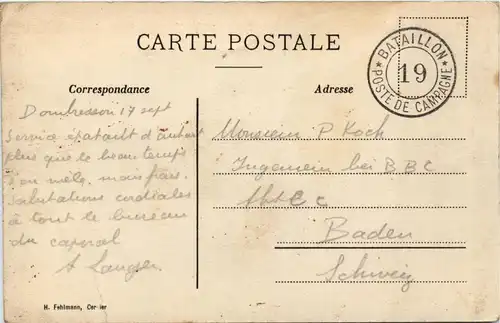 CARTE POSTALE
BATAILLON
19
POSTE DE CAMPAGNE
Correspondance
Adresse
Dombresson 17 sept
Service épatant d'autant
plus que le beau temps
s'en mêle, mais
salutations cordiales
à tout le bureau
du caporal
Monsieur P. Koch
Ingenieur bei B B C
Baden
Schweiz
H. Fehlmann, Cerlier